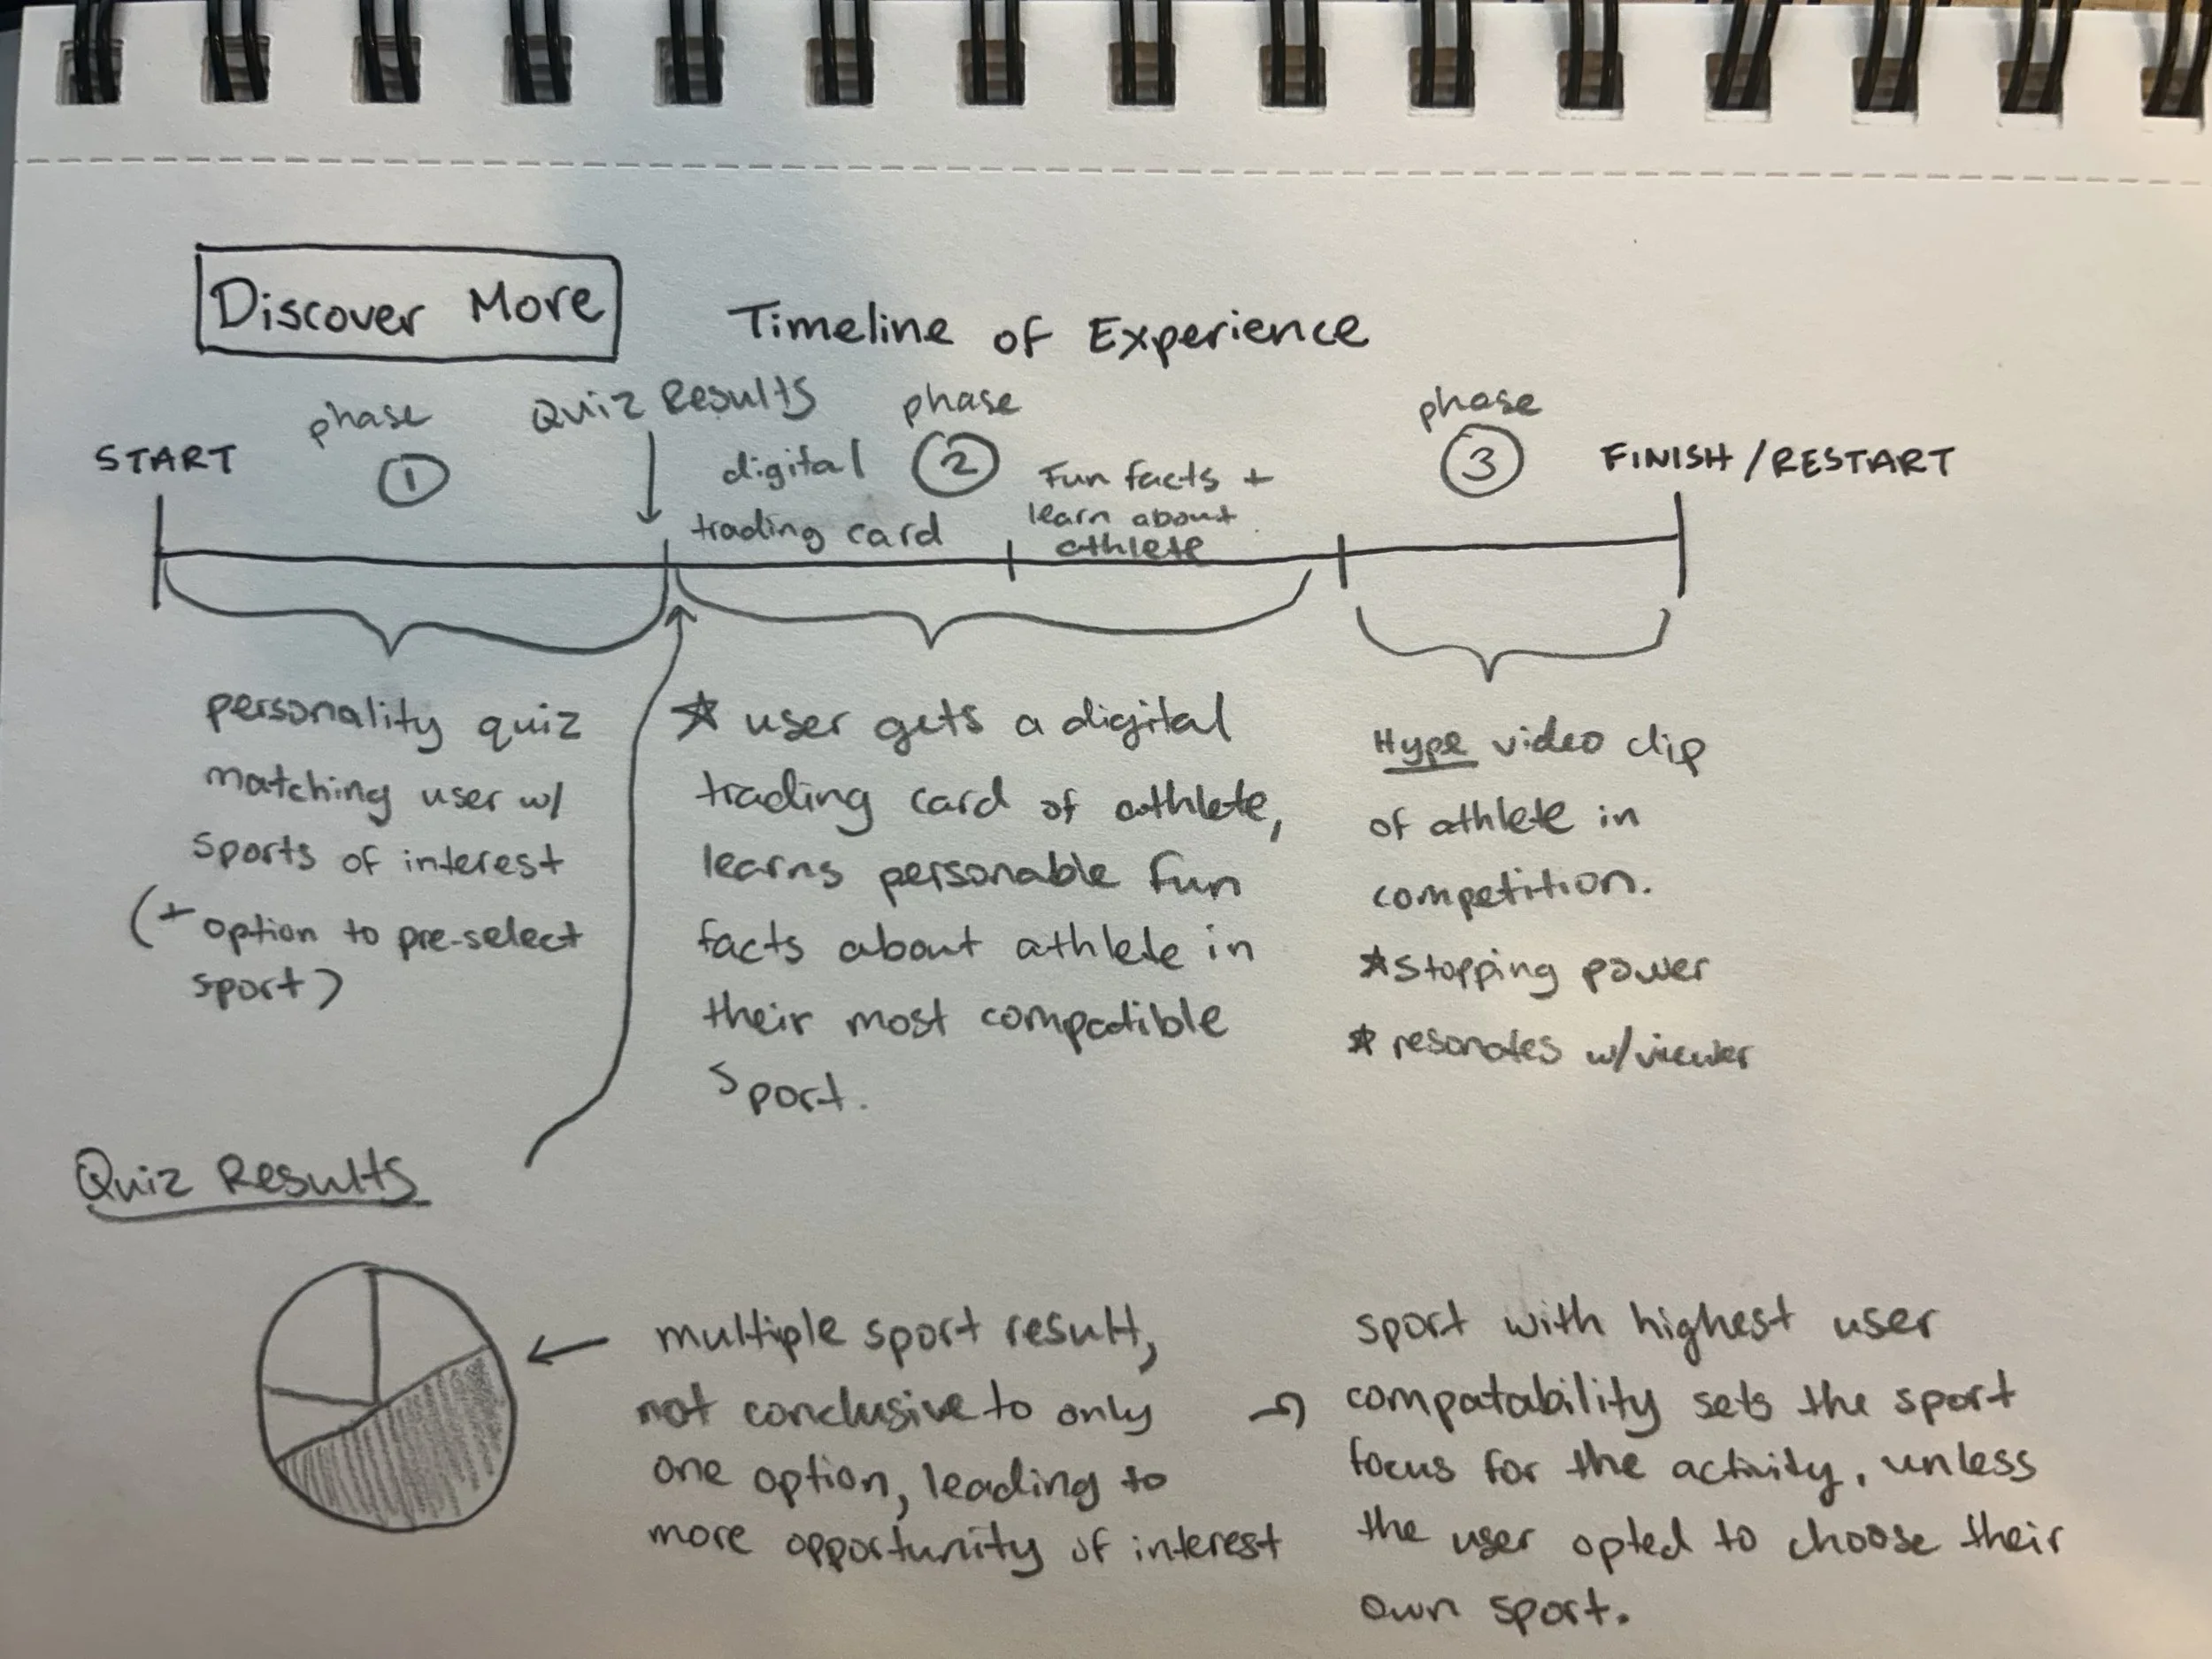 Discover More
Timeline of Experience
START
phase
1
Quiz Results
digital
trading card
phase
2
Fun facts +
learn about
athlete
phase
3
FINISH/RESTART
personality quiz
matching user w/
sports of interest
(+ option to pre-select
sport)
☆ user gets a digital
trading card of athlete,
learns personable fun
facts about athlete in
their most compatible
sport.
Hype video clip
of athlete in
competition.
☆ stopping power
☆ resonates w/viewer
Quiz Results
← multiple sport result,
not conclusive to only
one option, leading to
more opportunity of interest
→ sport with highest user
compatability sets the sport
focus for the activity, unless
the user opted to choose their
own sport.